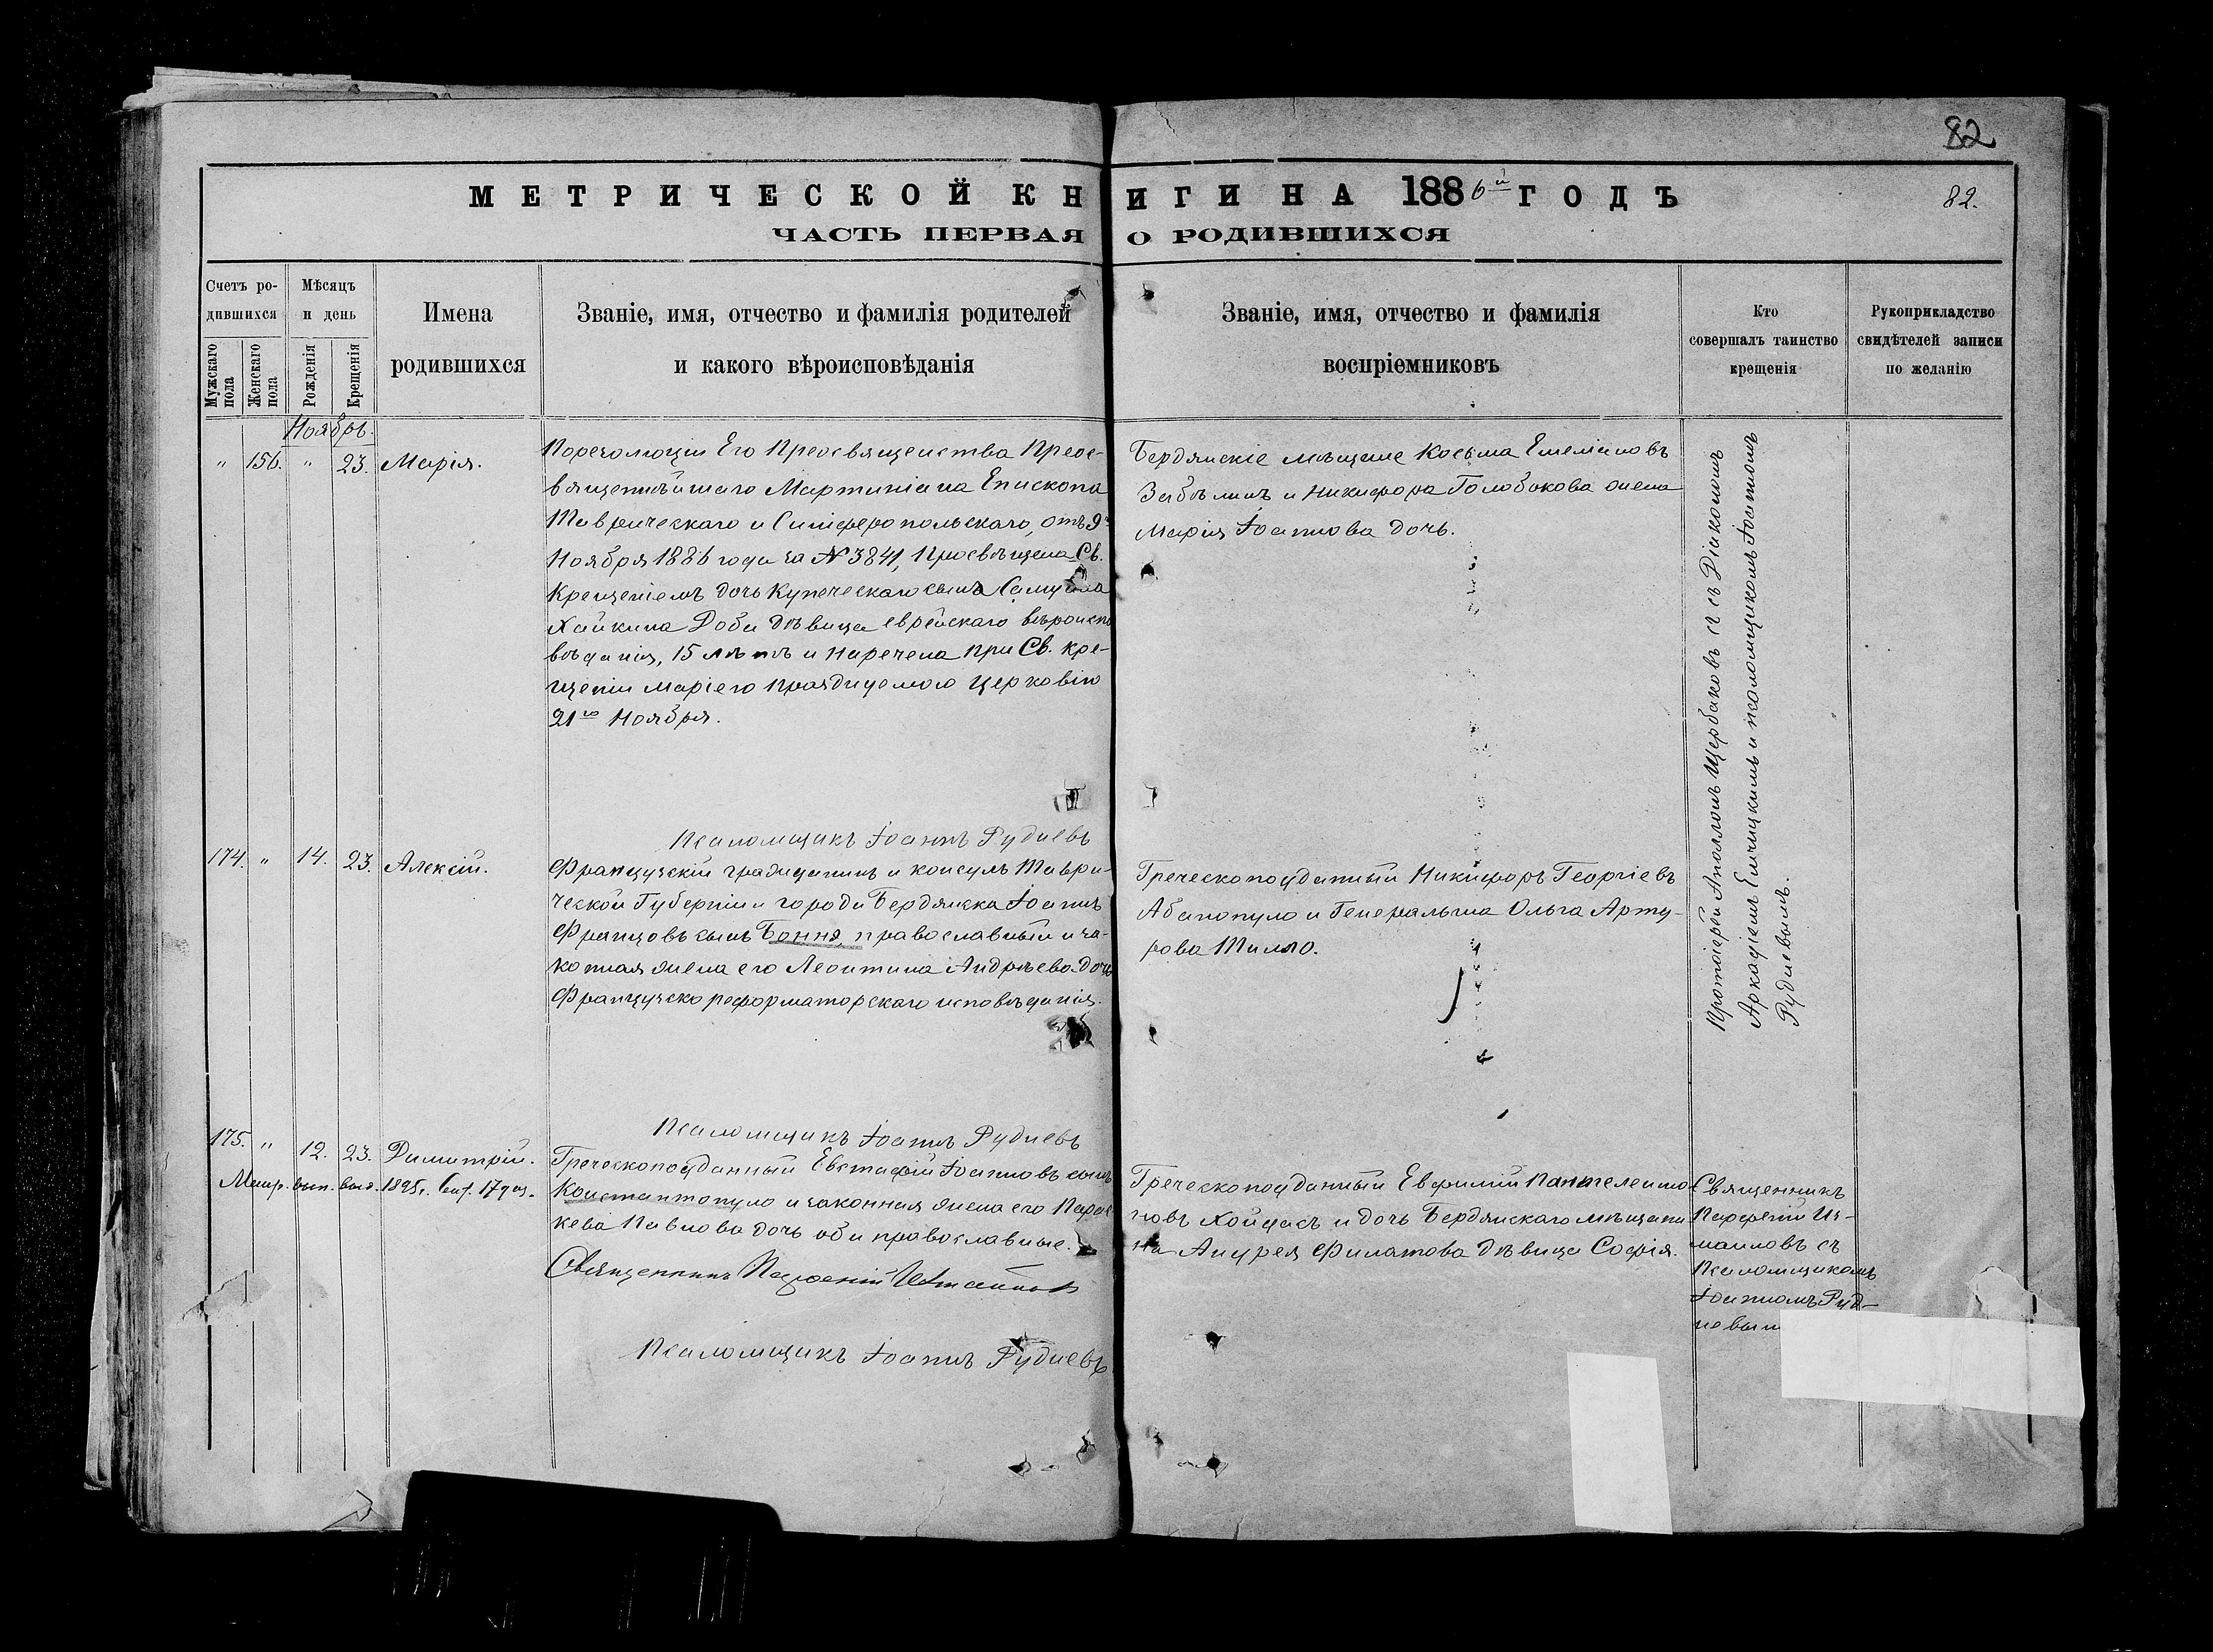 82
МЕТРИЧЕСКОЙ КНИГИ НА 1886й ГОДЪ
82.
ЧАСТЬ ПЕРВАЯ О РОДИВШИХСЯ
Счетъ родившихся
Мужскаго пола
Женскаго пола
Мѣсяцъ и день
Рожденія
Крещенія
Имена
родившихся
Званіе, имя, отчество и фамилія родителей
и какого вѣроисповѣданія
Званіе, имя, отчество и фамилія
воспріемниковъ
Кто
совершалъ таинство
крещенія
Рукоприкладство
свидѣтелей записи
по желанію
Ноябрь.
" 156. " 23. Марія.
По резолюціи Его Преосвященства Преос-
вященнѣйшаго Мартиніана Епископа
Таврическаго и Симферопольскаго, отъ 9го
Ноября 1886 года за № 3841, просвѣщена Св.
Крещеніемъ дочь Купеческаго сына Самуила
Хайкина Доба дѣвица еврейскаго вѣроиспо
вѣданія, 15 лѣтъ и наречена при Св. кре-
щеніи Маріею празднуемою Церковію
21го Ноября.
Псаломщикъ Іоаннъ Рудневъ
Бердянскіе мѣщане Косьма Емеліановъ
Забѣлинъ и Никифора Голобокова жена
Марія Іоаннова дочь.
Протоіерей Аполлонъ Щербаковъ съ Діакономъ
Аркадіемъ и псаломщикомъ Іоанномъ
Рудневымъ.
174. " 14. 23. Алексій.
Французскій гражданинъ и консулъ Таври-
ческой Губерніи города Бердянска Іоаннъ
Францовъ сынъ Бонне, православный и за-
конная жена его Леонтина Андреева дочь
Французско реформаторскаго исповѣданія.
Псаломщикъ Іоаннъ Рудневъ
Греческоподданный Никифоръ Георгіевъ
Абанопуло и Генеральша Ольга Арту-
рова Тилло.
175. " 12. 23. Димитрій.
Метр. вып. выд. 1895г. Сент. 17 дня.
Греческоподданный Евстафій Іоанновъ сынъ
Константопуло и законная жена его Парас
кева Павлова дочь оба православные.
Священникъ Парѳеній Измаиловъ
Псаломщикъ Іоаннъ Рудневъ
Греческоподданный Евфимій Пантелеимо
новъ Хойдасъ и дочь Бердянскаго мѣщани
на Андрея Филатова дѣвица Софія.
Священникъ
Парѳеній Из-
маиловъ съ
Псаломщикомъ
Іоанномъ Руд-
невым